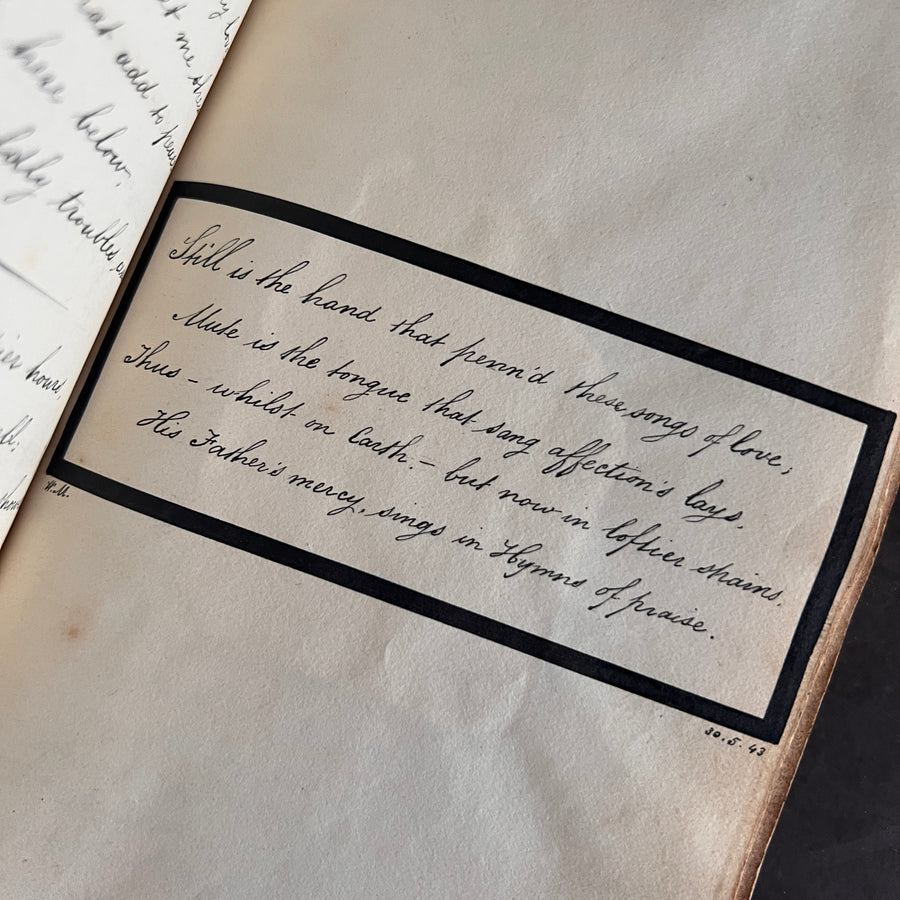 t me
at add to
have below,
troubles
hour,
Still is the hand that penn'd these songs of love,
Mute is the tongue that sang affection's lays,
Thus – whilst on Earth. – but now in loftier strains,
His Father's mercy, sings in Hymns of praise.
W.M.
30.5.43